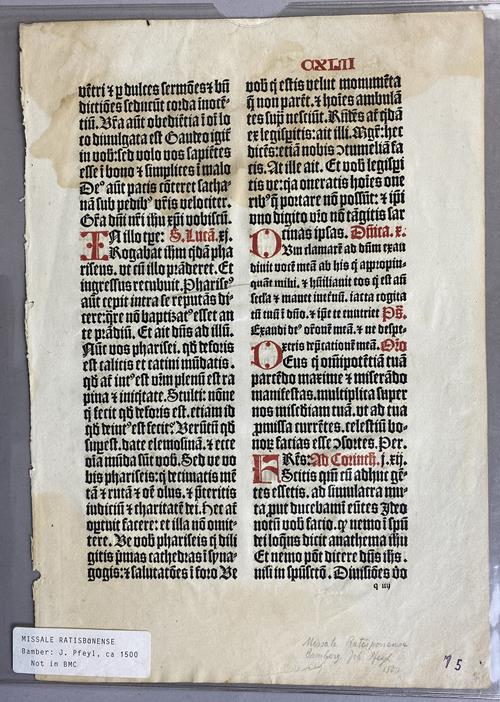 CXLIII
vētri ⁊ ꝑ dulces sermōes ⁊ bn̄
dictiōes seducūt corda inocē⸗
tiū. Vr̄a aūt obediētia ī oī lo
co diuulgata est Gaudeo igit̄
in vob̄: sed volo vos sapiētes
esse ī bono ⁊ simplices ī malo
De⁹ aūt pacis cōteret satha⸗
nā sub pedib⁹ vr̄is velociter.
Gr̄a dn̄i nr̄i ihu xp̄i vobiscū.
In illo tpe: S. Lucā. xj.
Rogabat ihm̄ qdā pha
riseus. vt cū illo prāderet. Et
ingressus recubuit. Pharise⁹
aūt cepit intra se reputās di⸗
cere: qre nō baptisat⁹ esset an
te prādiū. Et ait dn̄s ad illū.
Nūc vos pharisei. qd̄ deforis
est calicis et catini mūdatis.
qd̄ aūt int⁹ est vr̄m plenū est ra
pina ⁊ iniqtate. Stulti: nōne
q fecit qd̄ deforis est. etiam id
qd̄ deint⁹ est fecit? Verūtn̄ qd̄
supest. date elemosinā. ⁊ ecce
oīa mūda sūt vob̄. Sed ve vo
bis phariseis: q decimatis mē
tā ⁊ rutā ⁊ oē olus. ⁊ p̄teritis
iudiciū ⁊ charitatē dei. Hec aūt
oportuit facere: et illa nō omit⸗
tere. Ve vob̄ phariseis q dili
gitis p̄mas cathedras ī syna⸗
gogis: ⁊ salutatōes ī foro Ve
vob̄ q estis velut monumēta
q̄ non parēt. ⁊ hoīes ambulā
tes sup̄ nesciūt. Rn̄dēs aūt qdā
ex legisperitis: ait illi. Mgr̄: hec
dicēs: etiā nobis ↄtumeliā fa
cis. At ille ait. Et vob̄ legispi
tis ve: qa oneratis hoīes one
rib⁹ q̄ portare nō possūt: ⁊ ip̄i
vno digito vr̄o nō tāgitis sar
cinas ipsas. Dn̄ica. x.
Cum clamarē ad dn̄m exau
diuit vocē meā ab his q appropin⸗
quāt mihi. ⁊ hūiliauit eos q est an̄
secula ⁊ manet in eternū. iacta cogita
tū tuū ī dn̄o. ⁊ ip̄e te enutriet Ps̄.
Exaudi de⁹ or̄onē meā. ⁊ ne despe⸗
xeris dep̄catiōnē meā. Or̄o
Deus q oīnipotētiā tuā
parcēdo maxime ⁊ miserādo
manifestas. multiplica super
nos misediam tuā. vt ad tua
p̄missa currētes. celestiū bo⸗
noꝝ facias esse ↄsortes. Per.
Frēs: Ad Corinth. j. xij.
Scitis qm̄ cū adhuc gē⸗
tes essetis. ad simulacra mu⸗
ta prout ducebamī eūtes Ideo
notū vob̄ facio. qꝫ nemo ī sp̄ū
dei loqn̄s dicit anathema ihu
Et nemo pōt dicere dn̄s ihs.
nisi in sp̄ūscō. Diuisiōes vo
q iiij
MISSALE RATISBONENSE
Bamber: J. Pfeyl, ca 1500
Not in BMC
Missale Ratisponense
Bamberg Joh Pfeyl
75